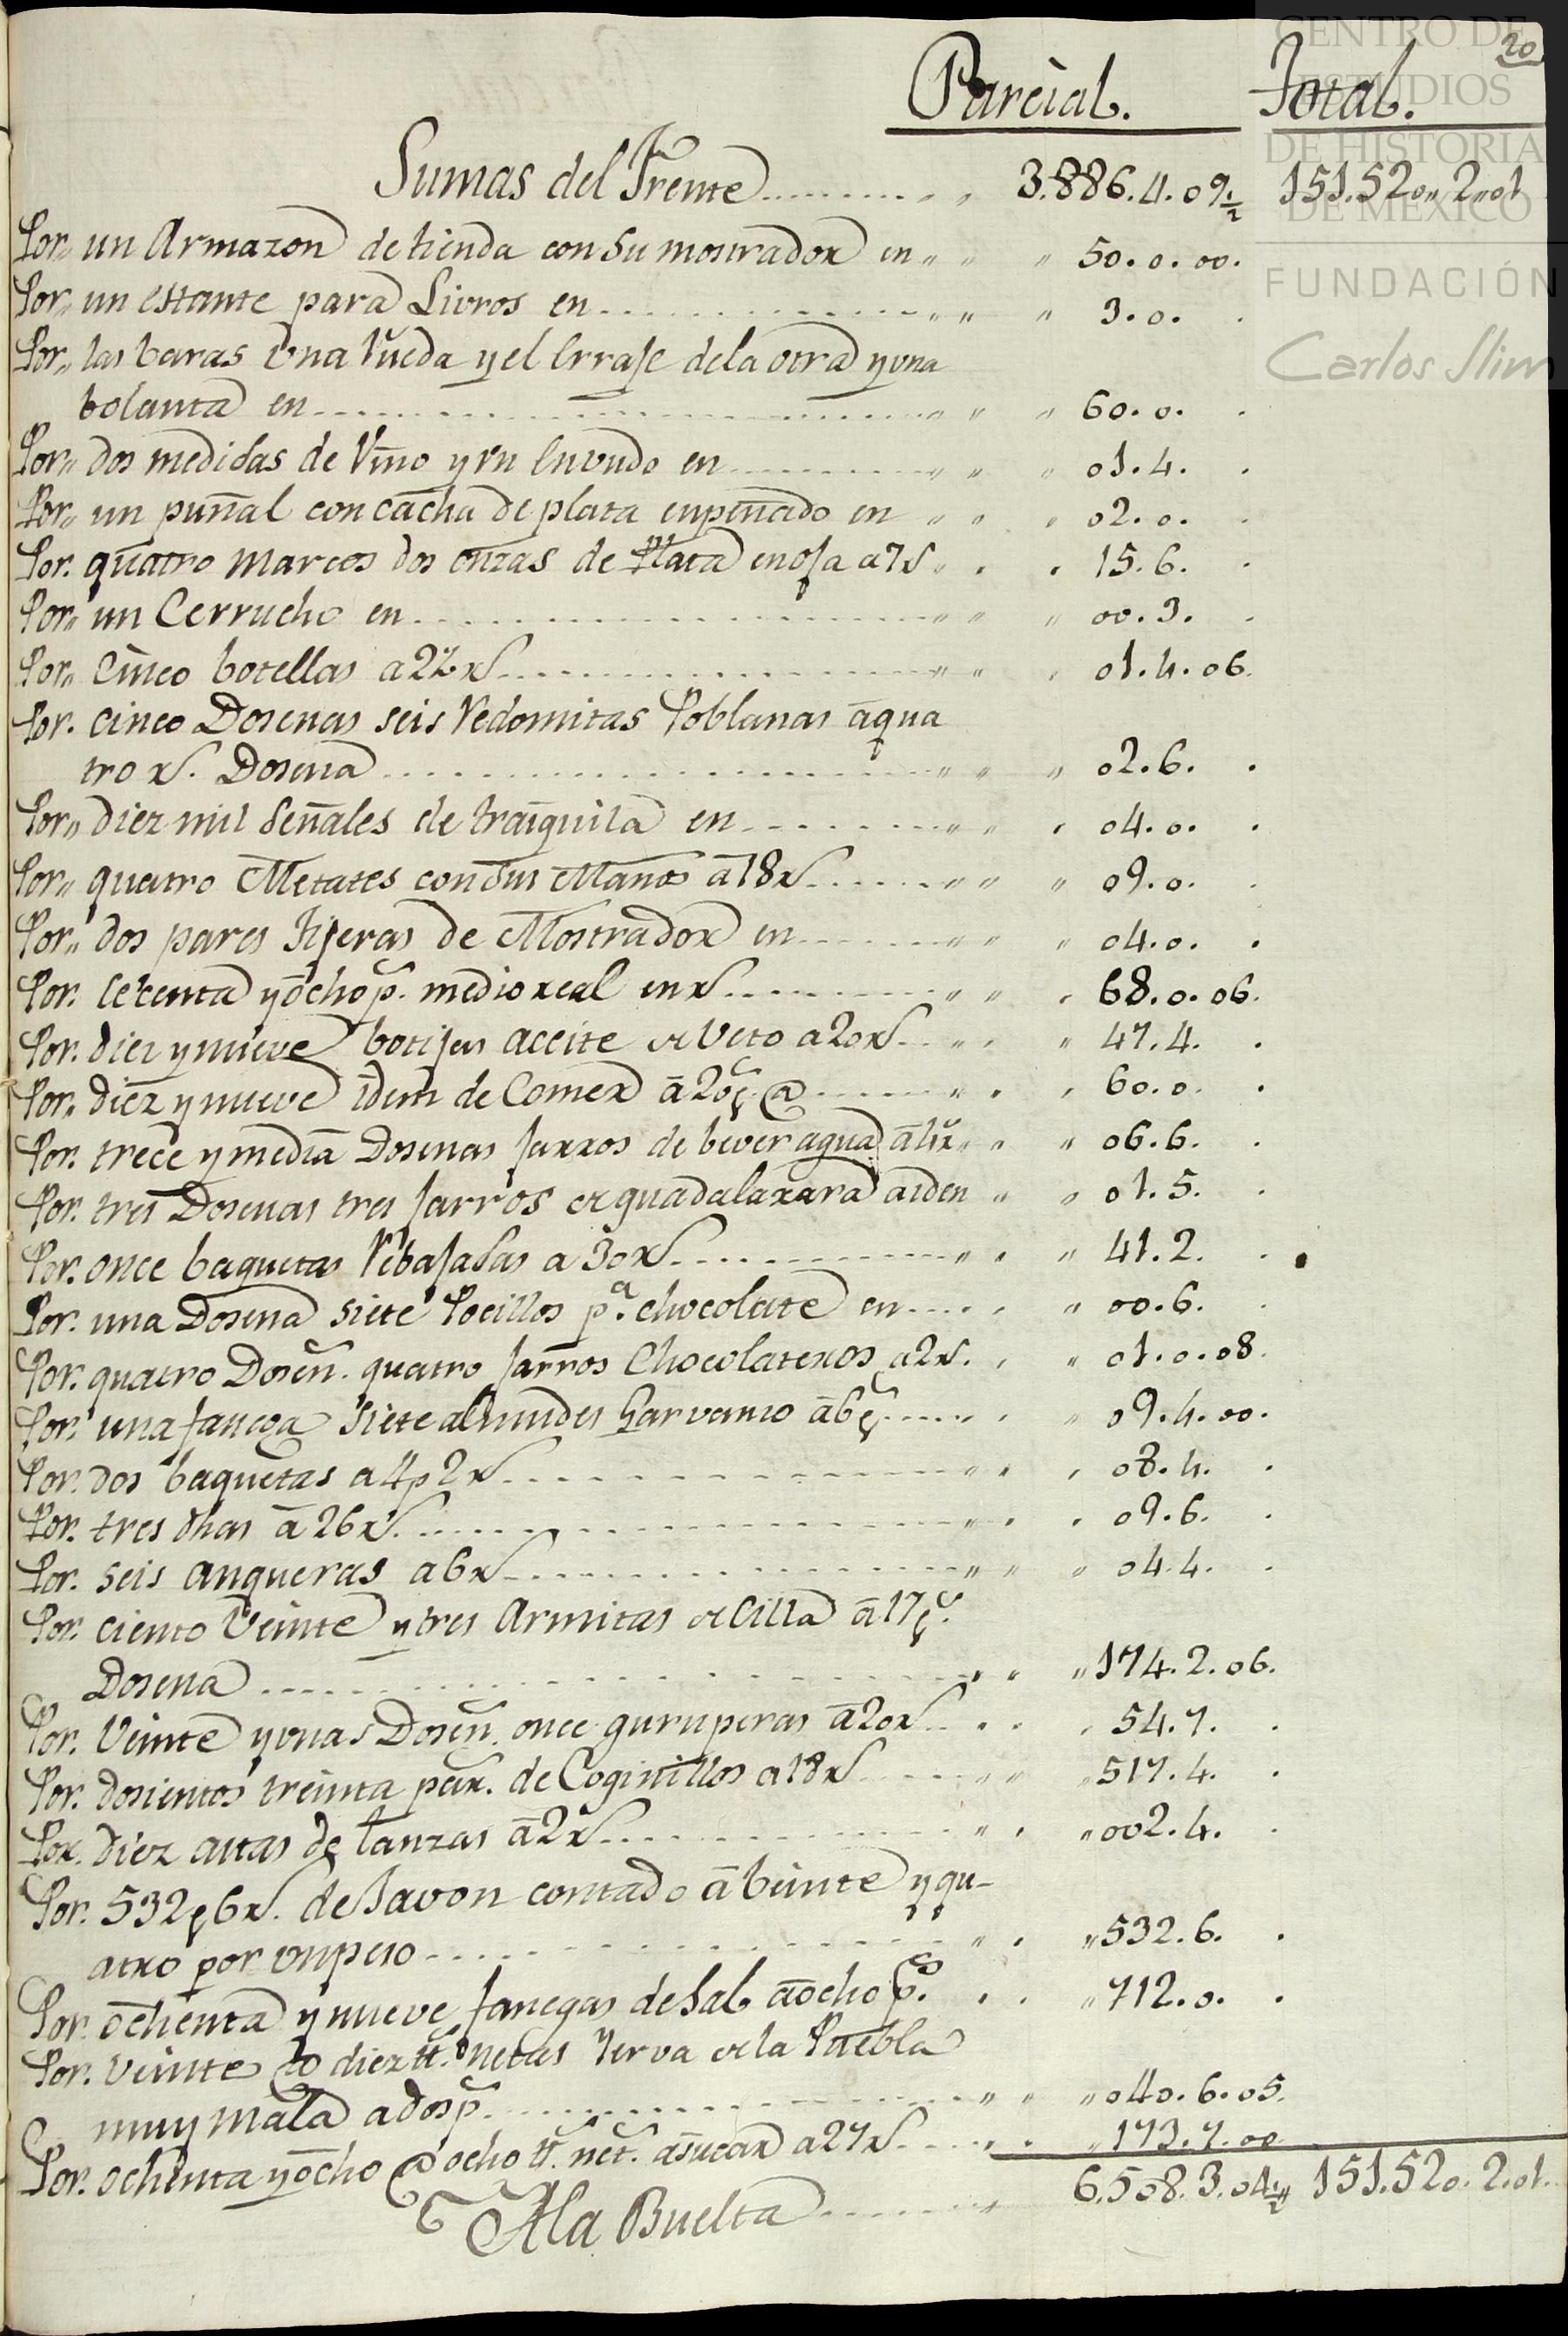 20
Parcial. Total.
Sumas del Frente 3.886.4.09½ 151.520,,2,,01
Por,, un Armazon de tienda con Su mostrador en 50.0.00.
Por,, un estante para Livros en 3.0.
Por,, las baras Vna Rueda y el erraje dela otra y vna
bolanta en 60.0.
Por,, dos medidas de Vino y vn envudo en 01.4.
Por,, un puñal con cacha de plata enpeñado en 02.0.
Por. quatro Marcos dos onzas de Plata en oja a 7 02.0. 15.6.
Por,, un Cerrucho en 00.3.
Por,, Cinco botellas a 2½ r.s 01.4.06.
Por. cinco Dosenas seis Redomitas Poblanas a qua
tro r.s Dosena 02.6.
Por,, diez mil Señales de tranquila en 04.0.
Por,, quatro Metates con Sus Manos a 18 r.s 09.0.
Por,, dos pares Tijeras de Mostrador en 04.0.
Por. cecenta y ocho p.s medio real en r.s 68.0.06.
Por. diez y nueve botijas aceite de Veto a 20 r.s 47.4.
Por,, Diez y nueve idem de Comer a 20 @ 60.0.
Por. trece y media Dosenas Jarros de bever agua a 4 r.s 06.6.
Por. tres Dosenas tres Jarros de guadalaxara a iden 01.5.
Por. once baquetas Rebajadas a 30 r.s 41.2.
Por. una Dosena siete Pocillos p.a chocolate en 00.6.
Por. quatro Dosen. quatro Jarros Chocolateros a 2 r.s 01.0.08.
Por. una fanega Siete almudes Garvanzo a 6 p.s 09.4.00.
Por. dos baquetas a 4 p 2 r.s 08.4.
Por. tres dhas a 26 r.s 09.6.
Por. seis anqueras a 6 r.s 04.4.
Por. ciento Veinte y tres Armitas de Cilla a 17 p.s
Dosena 174.2.06.
Por. Veinte y vnas Dosen. once guruperas a 20 r.s 54.7.
Por. dosientos treinta par. de Coginillos a 18 r.s 517.4.
Por. Diez astas de lanzas a 2 r.s 002.4.
Por. 532 p 6 r.s de Javon contado a beinte y qu-
atro por vn peso 532.6.
Por. ochenta y nueve fanegas de Sal a ocho p.s 712.0.
Por. Veinte @ diez tt.s netas Yerva de la Puebla
muy mala a dos p.s 040.6.05.
Por. ochenta y ocho @ ocho tt. net. asucar a 27 r.s 173.7.00
A la Buelta 6.508.3.04½ 151.520.2.01.
CENTRO DE
ESTUDIOS
DE HISTORIA
DE MÉXICO
FUNDACIÓN
Carlos Slim